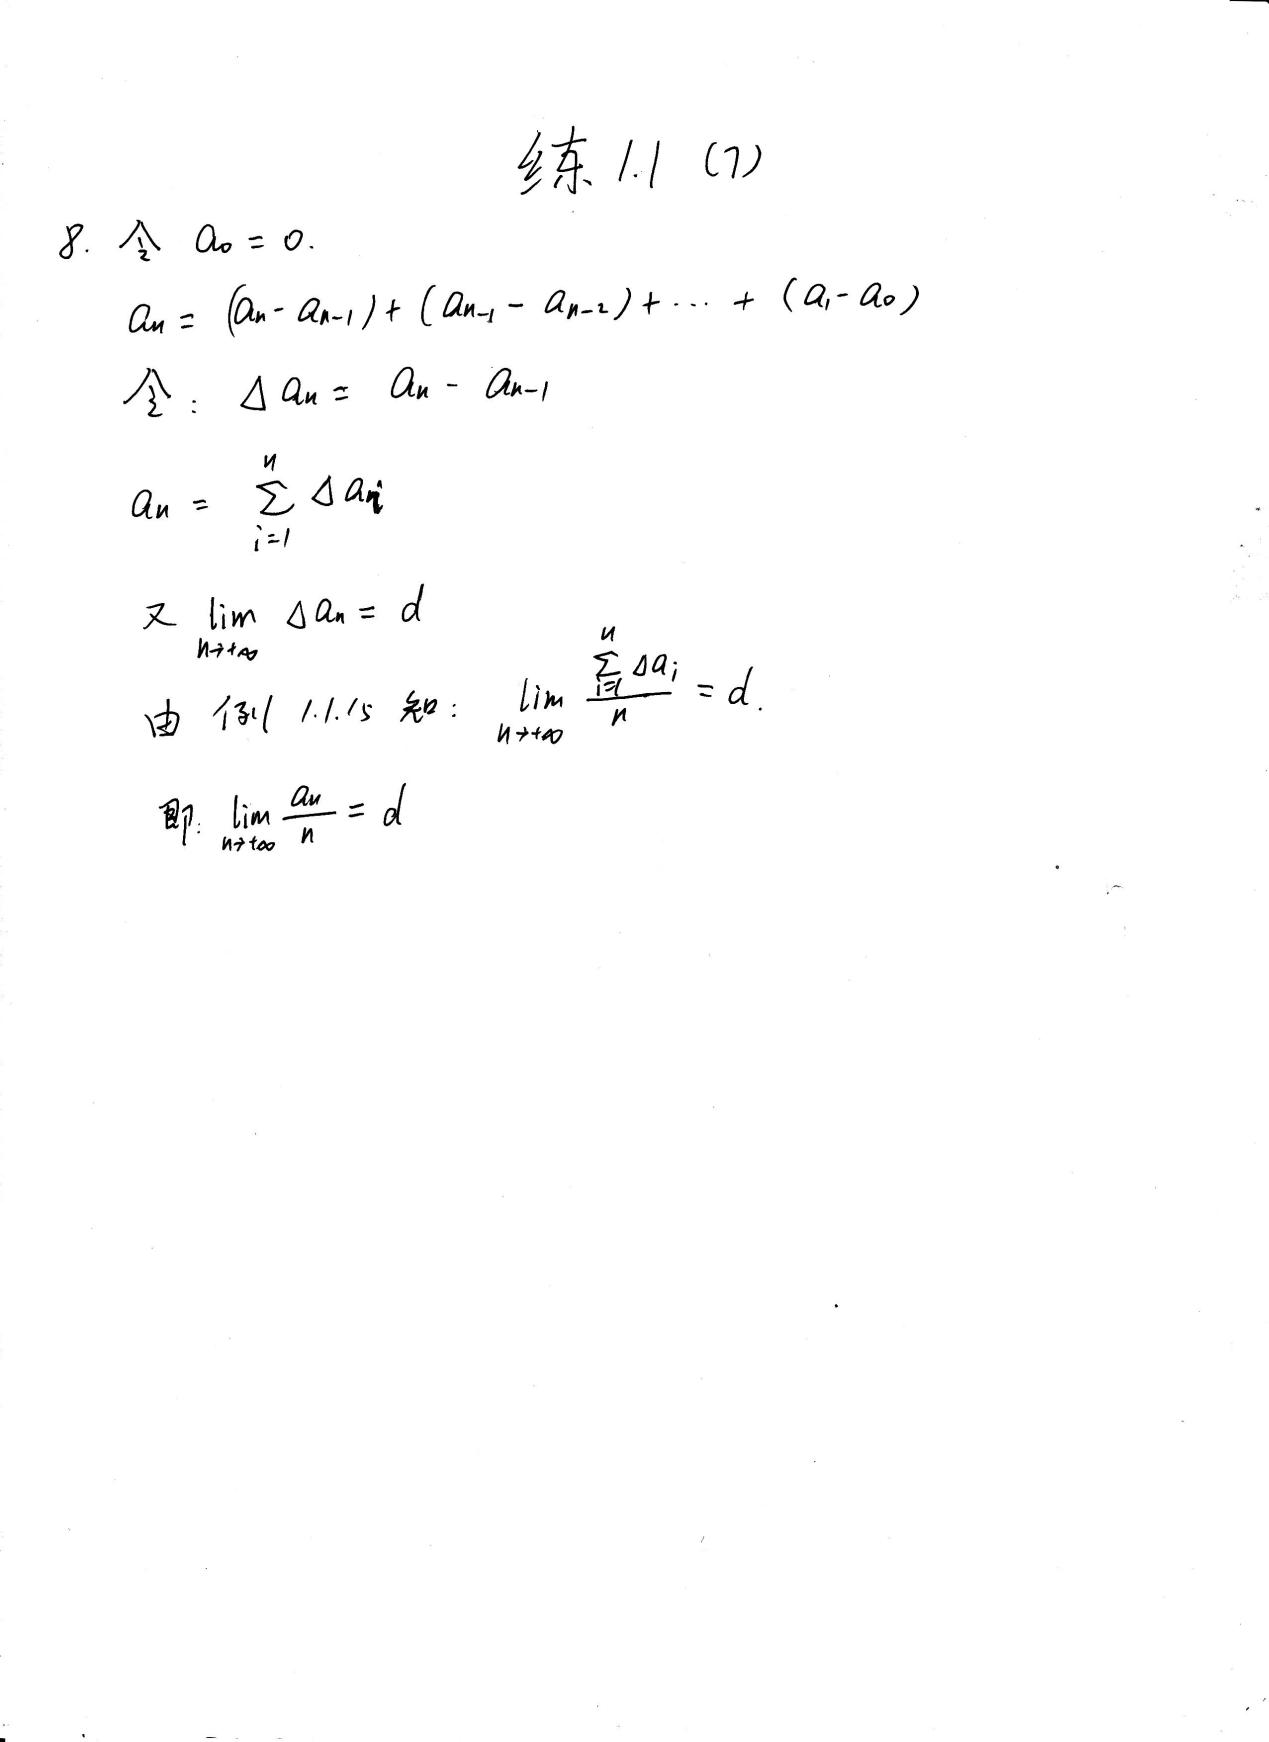 练 1.1 (7)
8. 令 a₀ = 0.
aₙ = (aₙ - aₙ₋₁) + (aₙ₋₁ - aₙ₋₂) + ... + (a₁ - a₀)
令: Δaₙ = aₙ - aₙ₋₁
aₙ = ∑_{i=1}^{n} Δaᵢ
又 lim_{n→+∞} Δaₙ = d
由 例 1.1.15 知: lim_{n→+∞} (∑_{i=1}^{n} Δaᵢ)/n = d.
即: lim_{n→+∞} aₙ/n = d